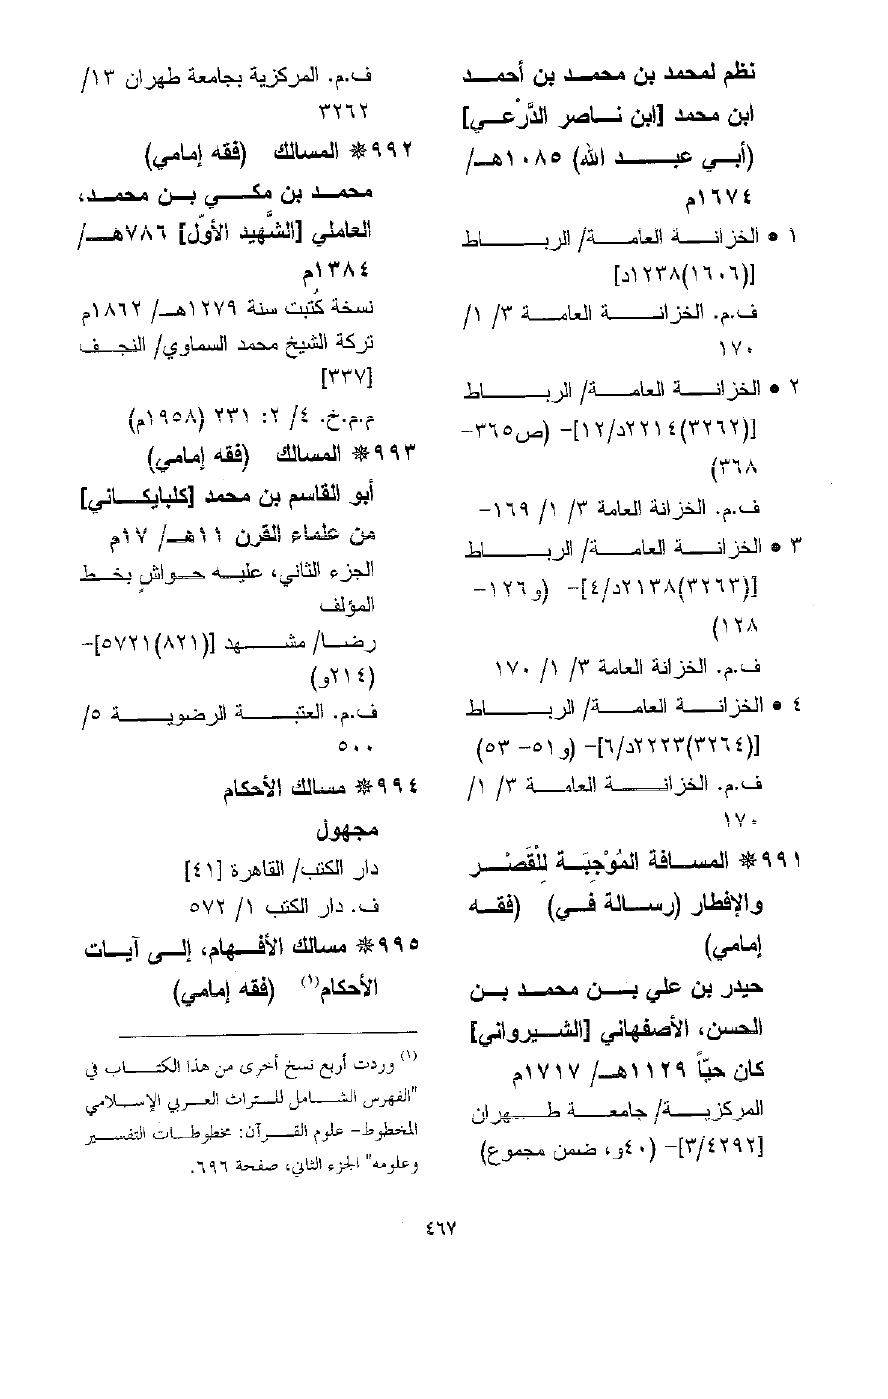 نظم لمحمد بن محمد بن أحمد
ابن محمد [ابن ناصر الدَّرْعي]
(أبي عبد الله) ١٠٨٥هـ/
١٦٧٤م
١ • الخزانة العامة/ الرباط
[(١٦٠٦)١٢٣٨د]
ف.م. الخزانة العامة ٣/ ١/
١٧٠
٢ • الخزانة العامة/ الرباط
[(٣٢٦٢)٢٢١٤د/١٢]- (ص٣٦٥-
٣٦٨)
ف.م. الخزانة العامة ٣/ ١/ ١٦٩-
٣ • الخزانة العامة/ الرباط
[(٣٢٦٣)٢١٣٨د/٤]- (و١٢٦-
١٢٨)
ف.م. الخزانة العامة ٣/ ١/ ١٧٠
٤ • الخزانة العامة/ الرباط
[(٣٢٦٤)٢٢٢٣د/٦]- (و٥١- ٥٣)
ف.م. الخزانة العامة ٣/ ١/
١٧٠
٩٩١* المسافة المُوْجِبَة لِلْقَصْر
والإفطار (رسالة في) (فقه
إمامي)
حيدر بن علي بن محمد بن
الحسن، الأصفهاني [الشيرواني]
كان حيّاً ١١٢٩هـ/ ١٧١٧م
المركزية/ جامعة طهران
[٣/٤٢٩٢]- (٤٠و، ضمن مجموع)
ف.م. المركزية بجامعة طهران ١٣/
٣٢٦٢
٩٩٢* المسالك (فقه إمامي)
محمد بن مكي بن محمد،
العاملي [الشَّهيد الأوّل] ٧٨٦هـ/
١٣٨٤م
نسخة كُتبت سنة ١٢٧٩هـ/ ١٨٦٢م
تركة الشيخ محمد السماوي/ النجف
[٣٣٧]
م.م.خ. ٤/ ٢: ٢٣١ (١٩٥٨م)
٩٩٣* المسالك (فقه إمامي)
أبو القاسم بن محمد [كلبايكاني]
من علماء القرن ١١هـ/ ١٧م
الجزء الثاني، عليه حواشٍ بخط
المؤلف
رضا/ مشهد [(٨٢١)٥٧٢١]-
(٢١٤و)
ف.م. العتبة الرضوية ٥/
٥٠٠
٩٩٤* مسالك الأحكام
مجهول
دار الكتب/ القاهرة [٤١]
ف. دار الكتب ١/ ٥٧٢
٩٩٥* مسالك الأفهام، إلى آيات
الأحكام(١) (فقه إمامي)
(١) وردت أربع نسخ أخرى من هذا الكتاب في
"الفهرس الشامل للتراث العربي الإسلامي
المخطوط- علوم القرآن: مخطوطات التفسير
وعلومه" الجزء الثاني، صفحة ٦٩٦.
٤٦٧